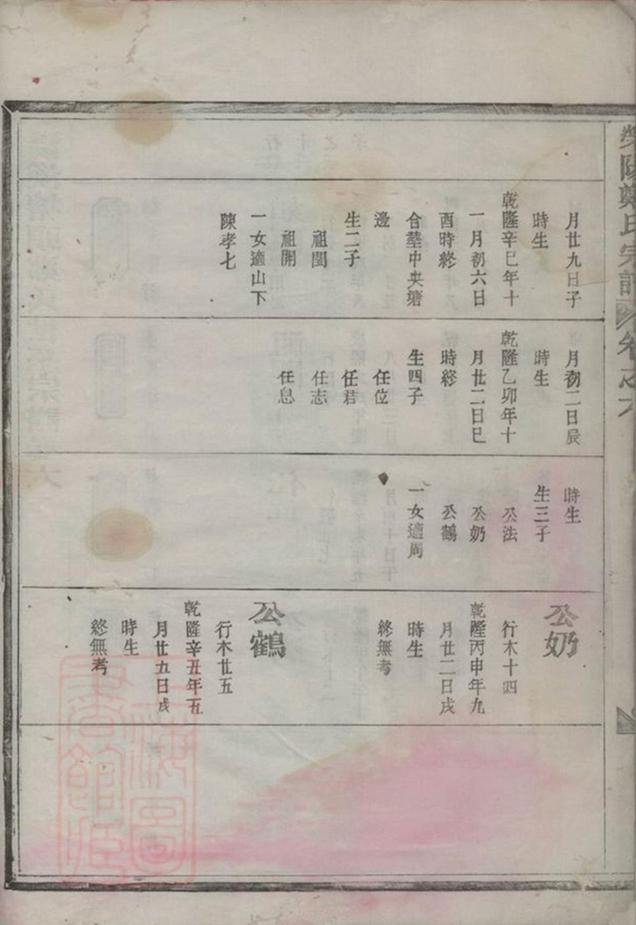 滎陽鄭氏宗譜
卷之六
月廿九日子
時生
乾隆辛巳年十
一月初六日
酉時終
合塟中央塘
邊
生二子
祖閏
祖開
一女適山下
陳孝七
月初二日辰
時生
乾隆乙卯年十
月廿二日巳
時終
生四子
任位
任君
任志
任息
時生
生三子
公法
公奶
公鶴
一女適周
公奶
行木十四
乾隆丙申年九
月廿二日戌
時生
終無考
公鶴
行木廿五
乾隆辛丑年五
月廿九日戌
時生
終無考
上海圖
書館藏